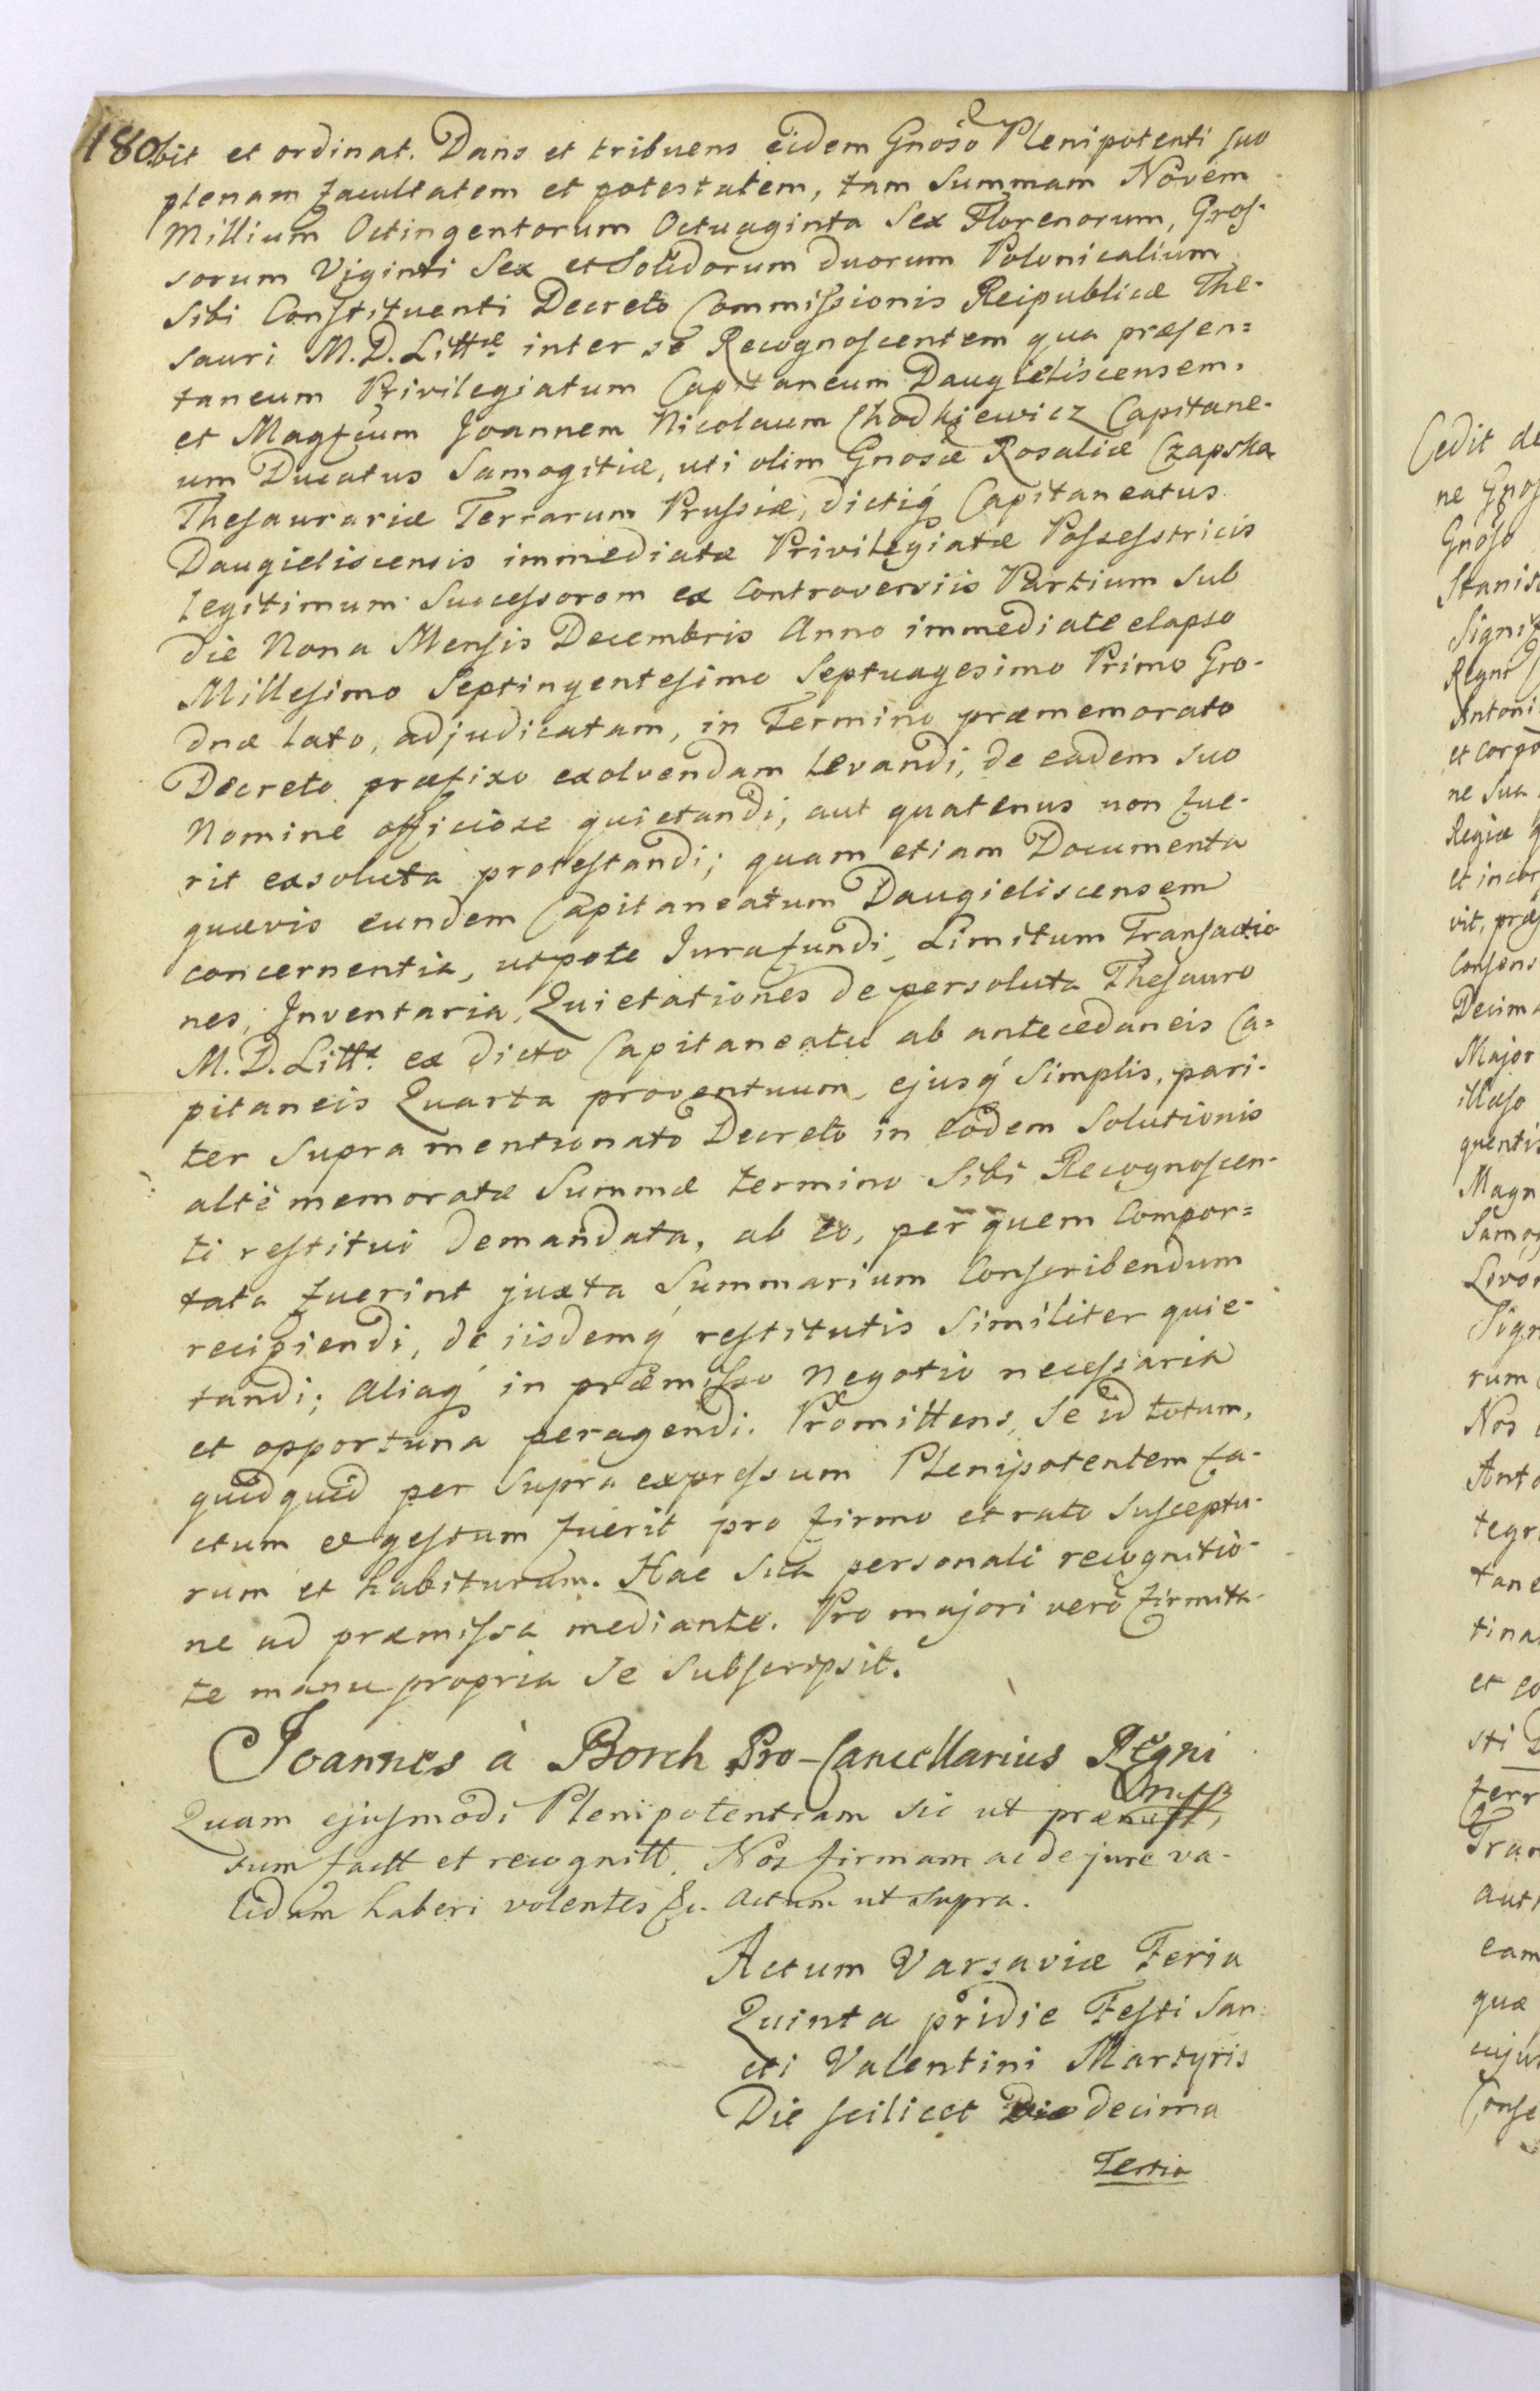 180
bit et ordinat. Dans et tribuens eidem Gnoso Plenipotenti suo
plenam facultatem et potestatem, tam Summam Novem
Millium Octingentorum Octuaginta Sex Florenorum, Gros-
sorum Viginti Sex et Solidorum duorum Polonicalium
Sibi Constituenti Decreto Commissionis Reipublicæ The-
sauri M. D. Littæ inter se Recognoscentem qua præsen=
taneum Privilegiatum Capitaneum Daugieliscensem.
et Magfcum Joannem Nicolaum Chodkiewicz Capitane-
um Ducatus Samogitiæ, uti olim Gnosæ Rosaliæ Czapska
Thesaurariæ Terrarum Prussiæ, dictiq́ Capitaneatus
Daugieliscensis immediatæ Privilegiatæ Possesstricis
legitimum Successorem ex Controversiis Partium Sub
die Nona Mensis Decembris Anno immediate elapso
Millesimo Septingentesimo Septuagesimo Primo Gro-
dnæ lato, adjudicatam, in Termino præmemorato
Decreto præfixo exolvendam levandi, de eadem suo
Nomine officiose quietandi, aut quatenus non fue-
rit exsoluta protestandi; quam etiam Documenta
quævis eundem Capitaneatum Daugieliscensem
concernentia, utpote Jura fundi, Limitum Transactio
nes, Inventaria, Quietationes de persoluta Thesauro
M. D. Littæ ex dicto Capitaneatu ab antecedaneis Ca=
pitaneis Quarta proventuum, ejusq́ Simplis, pari-
ter Supra mentionato Decreto in eodem Solutionis
altè memoratæ Summæ termino Sibi Recognoscen-
ti restitui demandata, ab eo, per quem Compor=
tata fuerint juxta Summarium Conscribendum
recipiendi, de iisdemq́ restitutis Similiter quie-
tandi; Aliaq́ in præmisso Negotio necessaria
et opportuna peragendi. Promittens, Se id totum,
quidquid per Supra expressum Plenipotentem fa-
ctum et gestum fuerit pro firmo et rato Susceptu-
rum et habiturum. Hac Sua personali recognitio-
ne ad præmissa mediante. Pro majori verò firmita-
te manu propria Se Subscripsit.
Joannes à Borch Pro-Cancellarius Regni
Quam ejusmodi Plenipotentiam sic ut præmis
sum factt et recognitt, Nos firmam ac de jure va-
lidam haberi volentes &c. Actum ut supra.
Actum Varsaviæ Feria
Quinta pridie Festi San
cti Valentini Martyris
Die scilicet decima
Tertia
Cedit de
ne Gnos
Gnoso
Stanis
Signif
Regni
Antoni
et corpo
ne Sua
Regiæ
et incor
vit, præs
Consens
Decima
Major
illuso
quentis
Magn
Samog
Livon
Sign
rum
Nos
Anto
tegr
tane
tina
et co
sti D
ferr
Tran
aut
eam
quæ
cujus
Conse